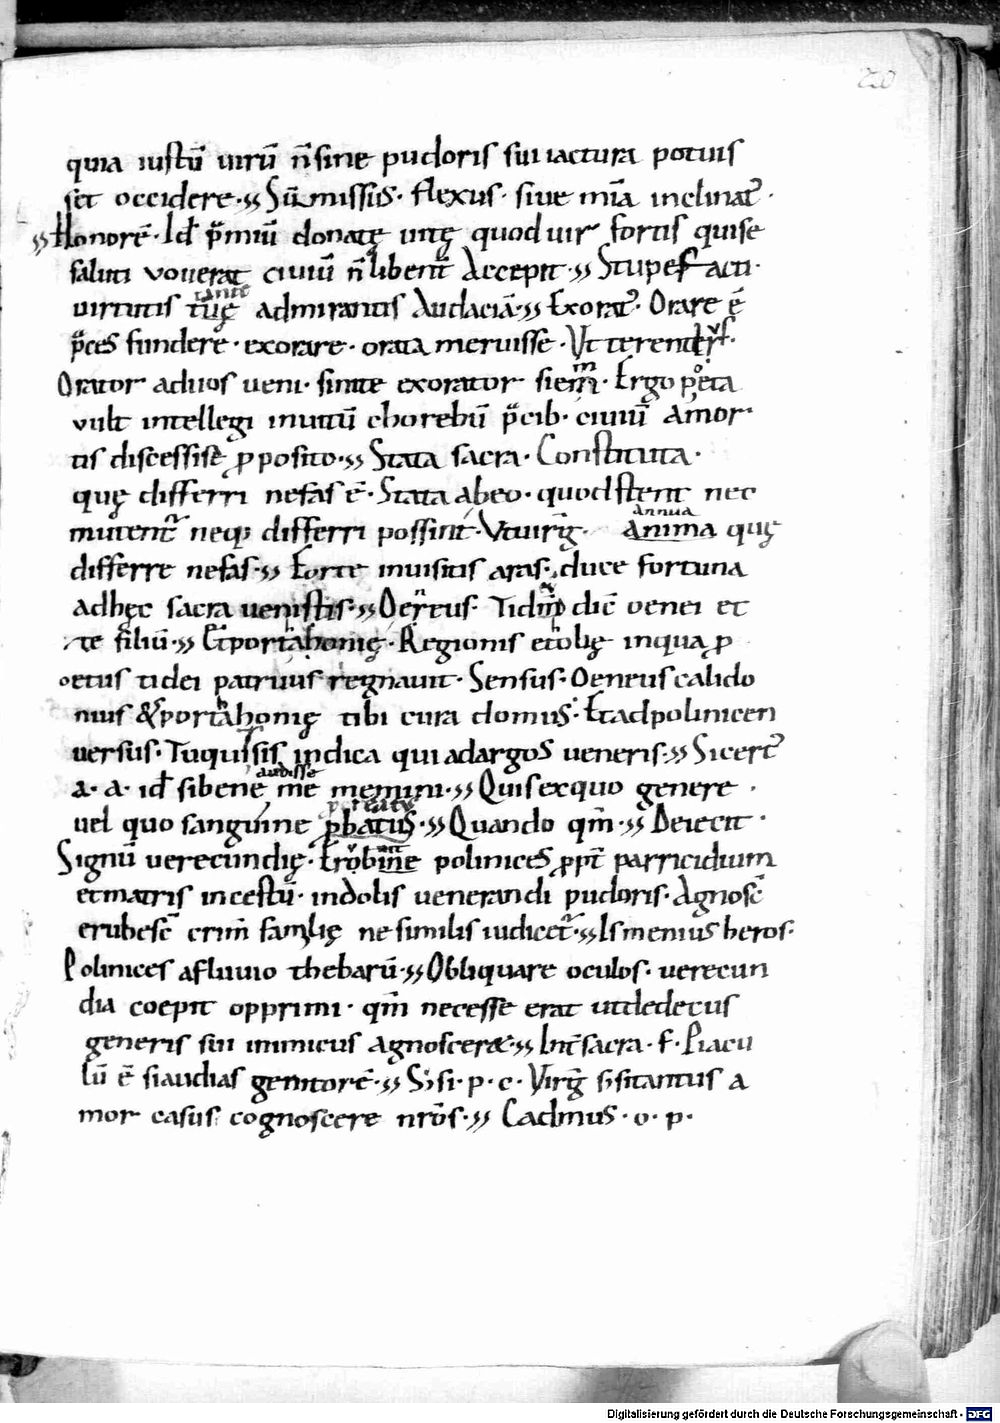 220
quia iustū uirū n̄ sine pudoris sui iactura potuis
set occidere·,, Sūmissus· flexus· siue mīa inclinat᷒·
,,Honorē· Id p̄miū donatę uitę quod uir fortis quise
saluti vouerat ciuiū n̄ libent̄ Accepit·,, Stupefacti·
tante
uirtutis tuę admirantis Audaciā·,, Exorat᷒· Orare ē
p̄ces fundere· exorare· orata meruisse· Vt
Orator aduos ueni· sinite exorator siem· Ergo poeta
m
vult intellegi inuitū chorebū p̄cib· ciuiū amor
tis discessisse ꝓposito·,, Stata sacra· Constituta·
quę differri nefas ē· Stata abeo· quod stent nec
annua
mutent᷒ neq; differri possint· Vt uirḡ· anima quę
differre nefas·,, Forte inuisitis aras· duce fortuna
adhęc sacra uenistis·,, Oeneus· dic̄ oenei et
te filiū·,, Et porthaonię· Regionis etolię inqua ꝓ
oetus tidei patruus regnauit· Sensus· Oeneus calido
nius & porthaonię tibi cura domus· Et ad polinicen
uersus· Tu quis sis indica qui ad argos ueneris·,, Si cert᷒
audisse
a· a· id si bene me memini·,, Quis ex quo genere·
creatus
uel quo sanguine ꝓbatus·,, Quando qm̄·,, Deiecit·
Signū uerecundię· Erubine polinices ꝓpt̄ parricidium
et matris incestū· indolis uenerandi pudoris· Agnosc̄
erubesc̄ crim̄ familię ne similis iudicet᷒·,, Ismenius heros·
Polinices a fluuio thebarū·,, Obliquare oculos· uerecun
dia coepit opprimi· qm̄ necesse erat ut dedecus
generis sui inimicus agnosceræ·,, Int̄ sacra· f· Piacu
lū ē si audias genitorē·,, S; si· p· c· Virḡ s; si tantus a
mor casus cognoscere nr̄os·,, Cadmus· o· p·
Digitalisierung gefördert durch die Deutsche Forschungsgemeinschaft - DFG